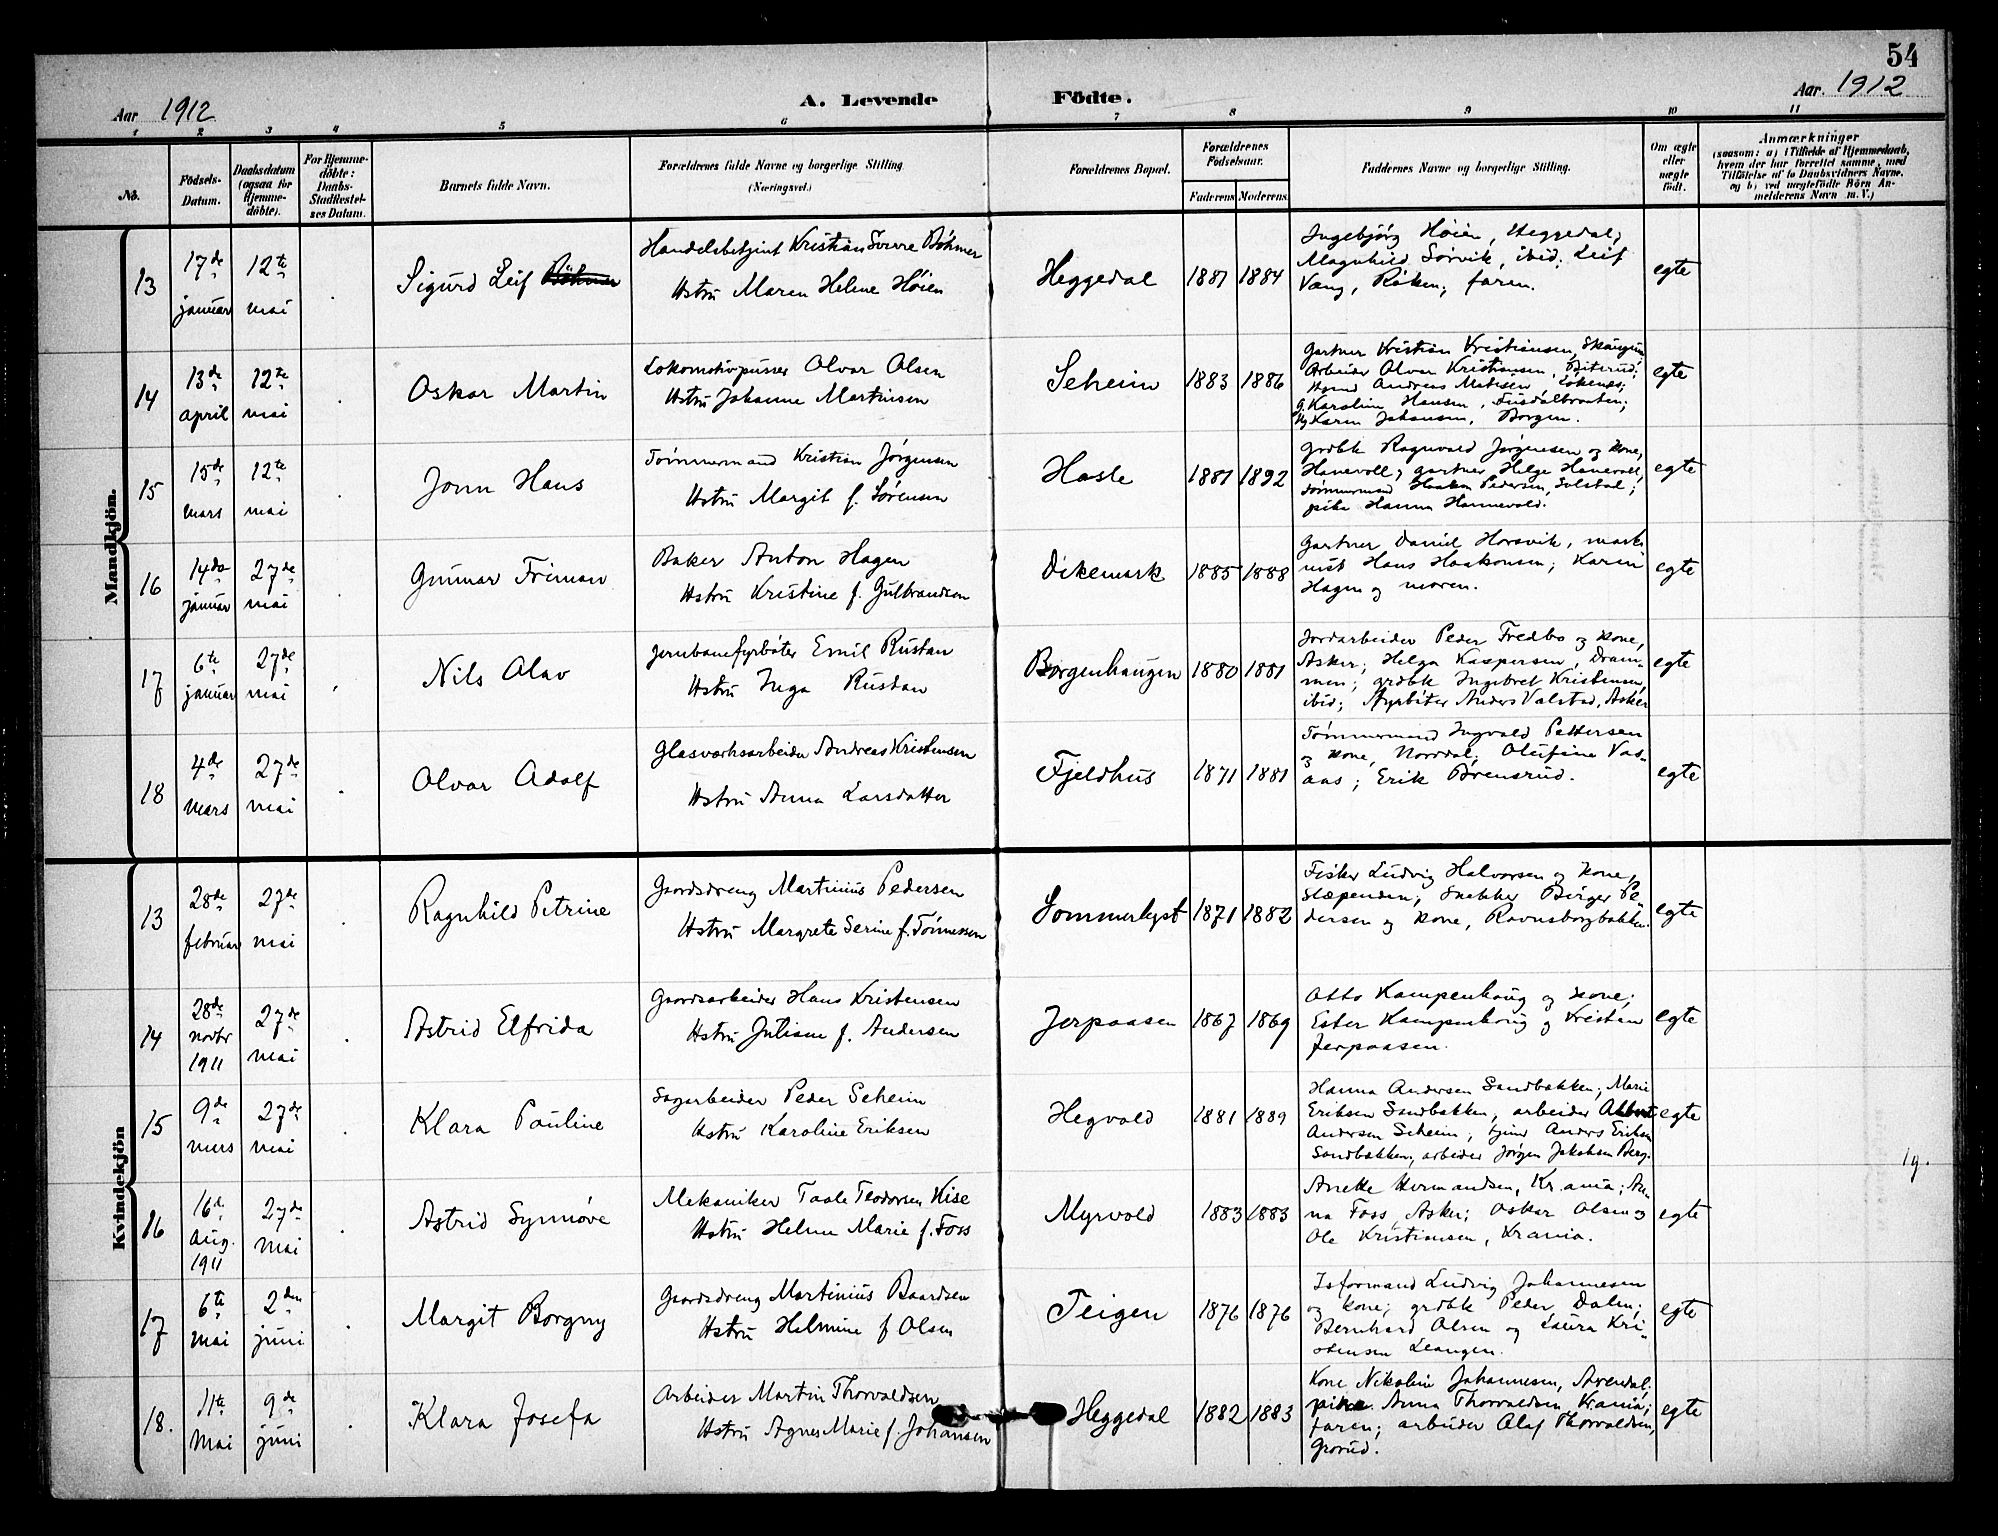 54
Aar 1912
A. Levende
Födte.
Aar. 1912
1 2 3 4 5 6 7 8 9 10 11
No.
Födsels-
Datum.
Daabsdatum
(ogsaa for
Hjemme-
döbte).
For Hjemme-
döbte:
Daabs-
Stadfestel-
ses Datum.
Barnets fulde Navn.
Forældrenes fulde Navne og borgerlige Stilling
(Næringsvei.)
Forældrenes Bopæl.
Forældrenes
Födselsaar.
Faderens Moderens
Faddernes Navne og borgerlige Stilling.
Om ægte
eller
uægte
født.
Anmærkninger
(saasom: a) i Tilfælde af Hjemmedaab,
hvem der har forrettet samme, med
Tilföielse af to Daabsvidners Navne.
og b) ved uægtefödte Börn An-
melderens Navn m. V.)
Mandkjön.
13
17de
januar
12te
mai
Sigurd Leif Böhmer
Handelsbetjent Kristian Sverre Böhmer
Hstru Maren Helene Höien
Heggedal
1881 1884
Ingebjörg Höien, Heggedal;
Magnhild Sörvik, ibid; Leif
Vang, Röken; faren.
egte
14
13de
april
12te
mai
Oskar Martin
Lokomotivpusser Olvar Olsen
Hstru Johanne Martinsen
Seheim
1883 1886
Gartner Kristian Kristiansen, Skaugum
Arbeider Olvar Kristiansen, Biterud;
Andreas Matisen Lökenes;
g. Karoline Hansen, Fusdalbraaten;
Karen Johansen, Borgen.
egte
15
15de
mars
12te
mai
Jonn Hans
Tömmermand Kristian Jörgensen
Hstru Margit f. Sörensen
Hasle
1881 1892
grdbk Ragnvald Jörgensen og kone,
Hanevoll; gartner Helge Hanevoll,
tömmermand Haakon Pedersen, Solstad;
pike Hanna Hannevold.
egte
16
14de
januar
27de
mai
Gunnar Friman
Baker Anton Hagen
Hstru Kristine f. Gulbrandsen
Dikemark
1885 1888
Gartner Daniel Horsvik, maski
nist Hans Haakonsen; Karen
Hagen og moren.
egte
17
6te
januar
27de
mai
Nils Olav
Jernbanefyrböter Emil Rustan
Hstru Inga Rustan
Borgenhaugen
1880 1881
Jordarbeider Peder Fredbo og kone,
Asker; Helga Kaspersen, Dram-
men; grdbk Ingebret Kristensen,
ibid; fyrböter Anders Valstad, Asker
egte
18
4de
mars
27de
mai
Olvar Adolf
Glasværksarbeider Andreas Kristensen
Hstru Anna Larsdatter
Fjeldhus
1871 1881
Tömmermand Ingvald Pettersen
og kone, Norddal; Olufine Vas-
aas; Erik Brensrud.
egte
Kvindekjön
13
28de
februar
27de
mai
Ragnhild Petrine
Gaardsdreng Martinius Pedersen
Hstru Margrete Serine f. Tönnessen
Sommerlyst
1871 1882
Fisker Ludvig Halvorsen og kone,
Slæpenden; Snekker Birger Pe-
dersen og kone, Ravnsborgbakken.
egte
14
28de
novbr
1911
27de
mai
Astrid Elfrida
Gaardsarbeider Hans Kristensen
Hstru Juliane f. Andersen
Jerpaasen
1867 1869
Otto Kampenhaug og kone;
Ester Kampenhaug og Kristian
Jerpaasen.
egte
15
9de
mars
27de
mai
Klara Pauline
Sagarbeider Peder Seheim
Hstru Karoline Eriksen
Hegvold
1881 1889
Hanna Andersen Sandbakken; Marie
Eriksen Sandbakken, arbeider Albert
Andersen Seheim; tjener Anders Eriksen
Sandbakken; arbeider Jörgen Jakobsen Berg.
egte
19.
16
16de
aug.
1911
27de
mai
Astrid Synnöve
Mekaniker Taale Teodorsen Kise
Hstru Helene Marie f. Foss
Myrvold
1883 1883
Anette Hermandsen, Kr.ania; An-
na Foss, Asker; Oskar Olsen og
Ole Kristiansen, Krania.
egte
17
6te
mai
2den
juni
Margit Borgny
Gaardsdreng Martinius Baardsen
Hstru Helmine f Olsen
Teigen
1876 1876
Isformand Ludvig Johannesen
og kone; grdbk Peder Dalen;
Bernhard Olsen og Laura Kri-
stensen Leangen.
egte
18.
11te
Mai
9de
juni
Klara Josefa
Arbeider Martin Thorvaldsen
Hstru Agnes Marie f. Johansen
Heggedal
1882 1883
Kone Nikoline Johannesen, Arendal;
pike Anna Thorvaldsen Krania;
faren; arbeider Olaf Thorvaldsen,
Grorud.
egte